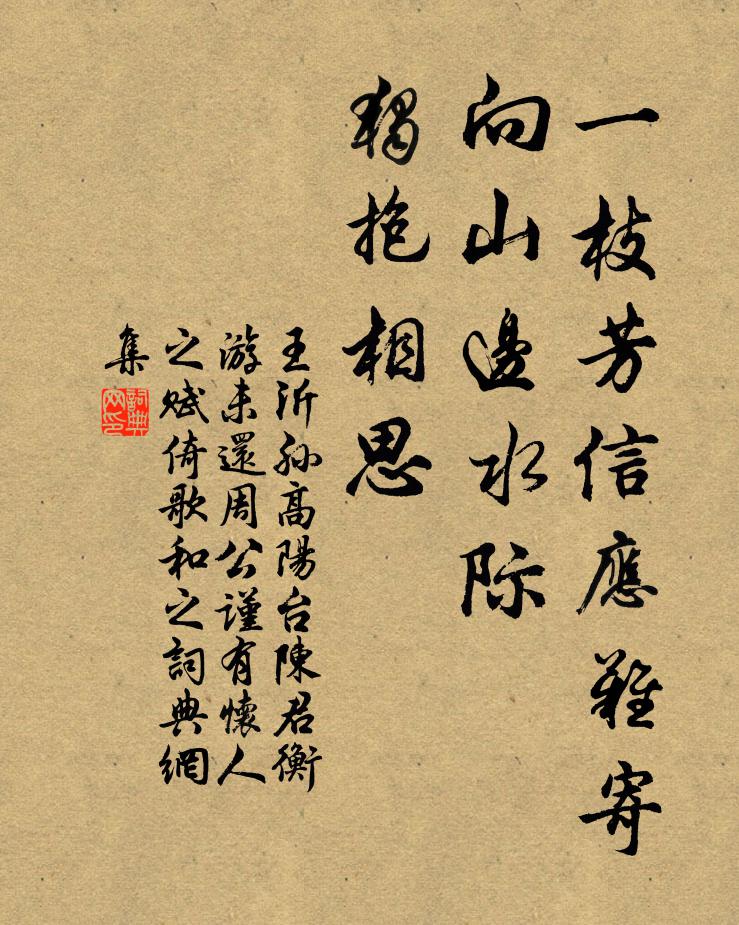 一枝芳信應難寄
向山邊水际
獨抱相思
王沂孙高陽台陳君衡
游未還周公谨有懷人
之赋倚歌和之詞典網
集
詞典
网印